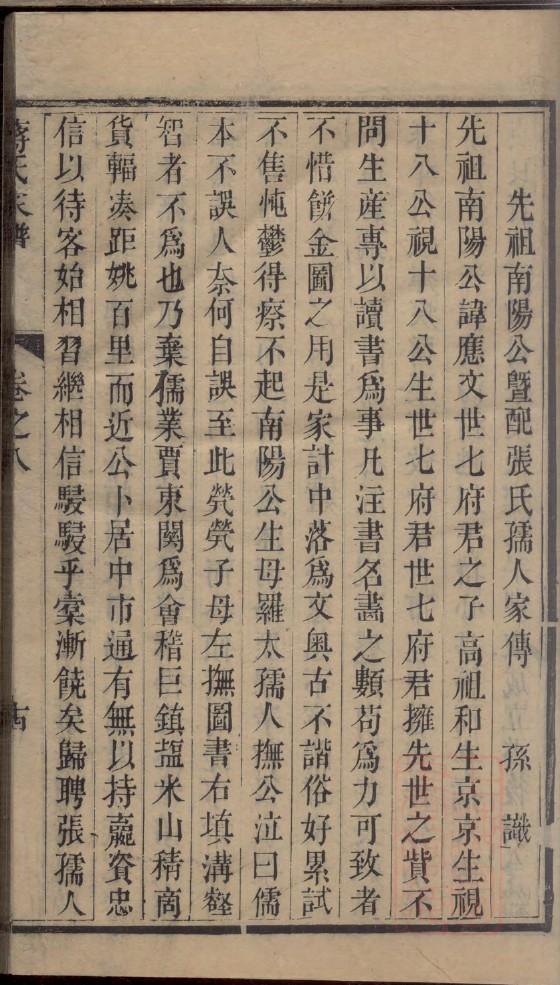 先祖南陽公暨配張氏孺人家傳　孫　識
先祖南陽公諱應文世七府君之子高祖和生京京生視
十八公視十八公生世七府君世七府君擁先世之貲不
問生産專以讀書爲事凡注書名畵之類苟爲力可致者
不惜餅金圖之用是家計中落爲文奥古不諧俗好累試
不售忳鬱得瘵不起南陽公生母羅太孺人撫公泣曰儒
本不誤人奈何自誤至此煢煢子母左撫圖書右填溝壑
智者不爲也乃棄儒業賈東関爲會稽巨鎮鹽米山積商
貨輻凑距姚百里而近公卜居中市通有無以持嬴資忠
信以待客始相習繼相信駸駸乎橐漸饒矣歸聘張孺人
蔣氏家譜
卷之八
十四